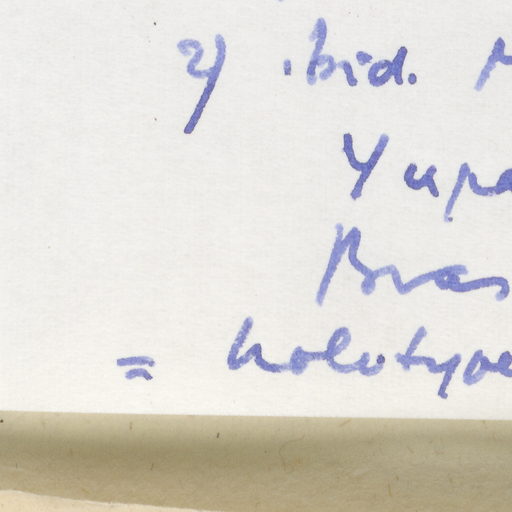 2) ibid.
Yupa
Bras
= holotype